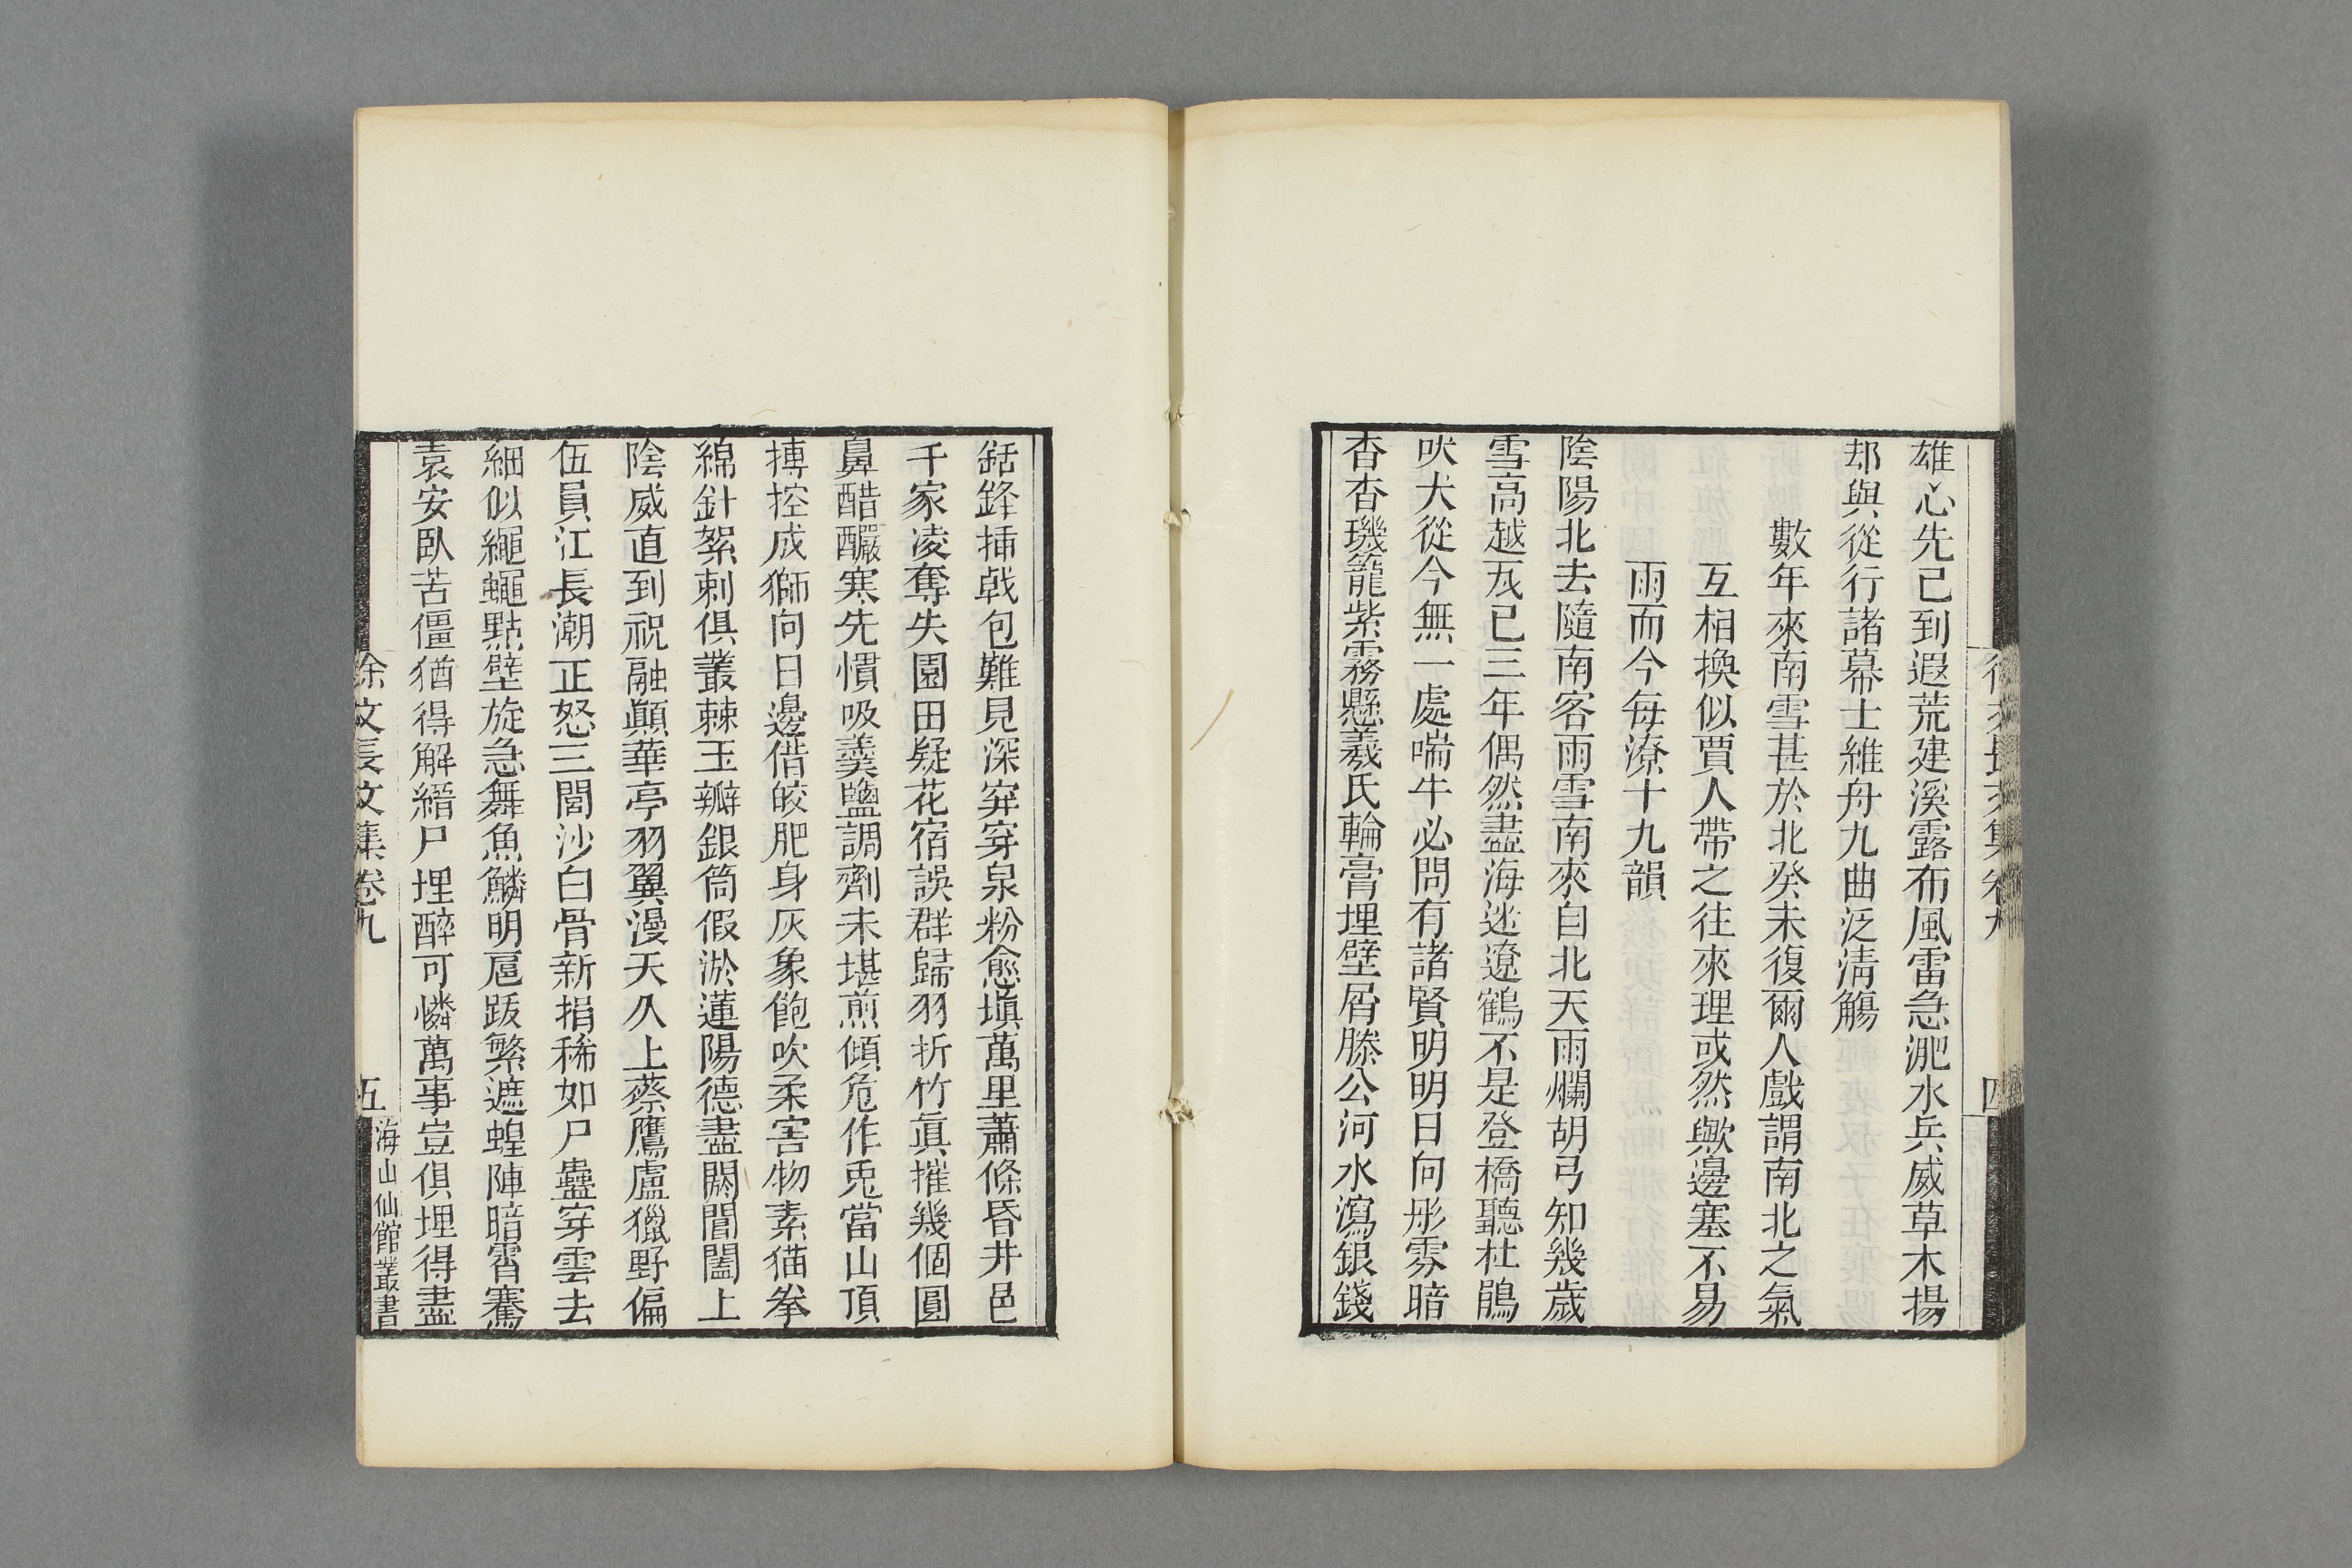 雄心先已到遐荒建溪露布風雷急淝水兵威草木揚
却與從行諸幕士維舟九曲泛淸觴
數年來南雪甚於北癸未復爾人戲謂南北之氣
互相換似賈人帶之往來理或然歟邊塞不易
雨而今每潦十九韻
陰陽北去隨南客雨雪南來自北天雨爛胡弓知幾歲
雪高越瓦已三年偶然盡海迷遼鶴不是登橋聽杜鵑
吠犬從今無一處喘牛必問有諸賢明明日向彤雰暗
杳杳璣籠紫霧懸羲氏輪膏埋壁屑滕公河水瀉銀錢
銛鋒揷戟包難見深穽穿泉粉愈塡萬里蕭條昏井邑
千家凌奪失園田疑花宿誤群歸羽折竹眞摧幾個圓
鼻醋釅寒先慣吸羹鹽調劑未堪煎傾危作兎當山頂
摶控成獅向日邊偕皎肥身灰象飽吹柔害物素猫拳
綿針絮刺俱叢棘玉瓣銀筒假淤蓮陽德盡闕閶闔上
陰威直到祝融巓華亭羽翼漫天久上蔡鷹盧獵野偏
伍員江長潮正怒三閭沙白骨新捐稀如尸蠱穿雲去
細似繩蠅點壁旋急舞魚鱗明扈跋繁遮蝗陣暗霄騫
袁安臥苦僵猶得解縉尸埋醉可憐萬事豈俱埋得盡
徐文長文集卷九
五
海山仙館叢書